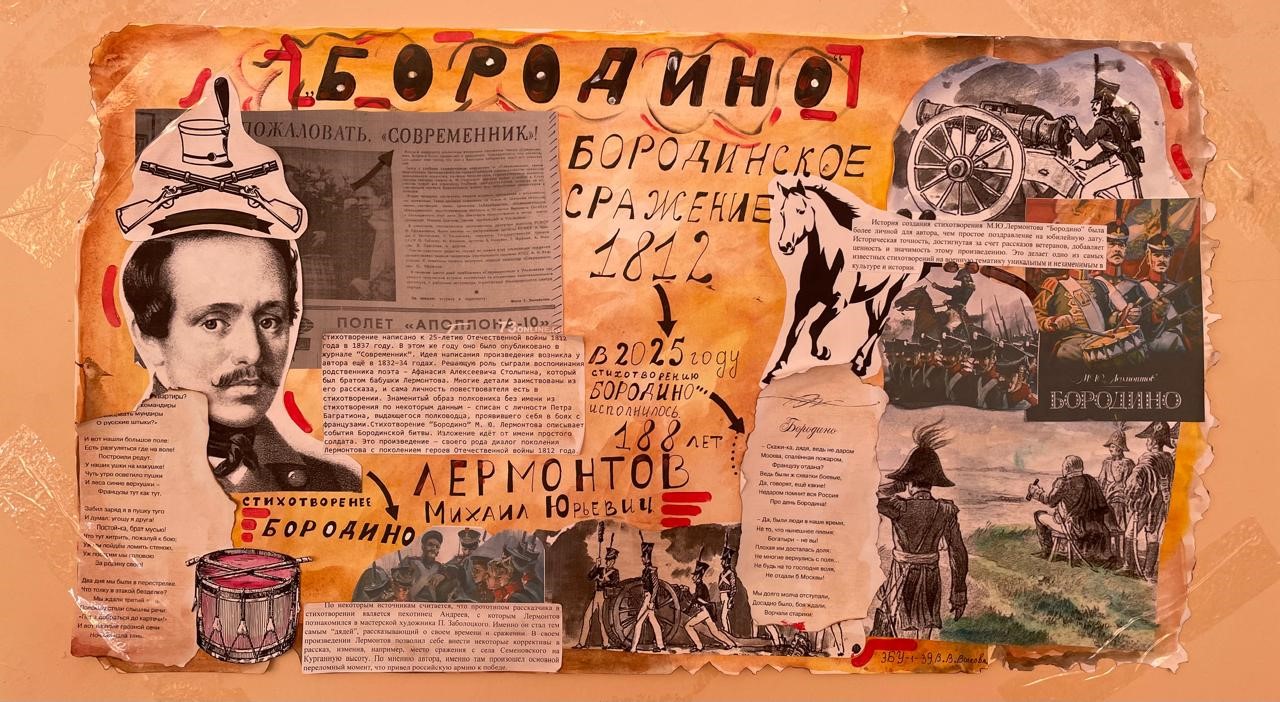 "БОРОДИНО"
ПОЖАЛОВАТЬ, «СОВРЕМЕННИК»!
ПОЛЕТ «АПОЛЛОНА-10»
73ONLINE.RU
БОРОДИНСКОЕ
СРАЖЕНИЕ
1812
В 2025 году
стихотворению
БОРОДИНО"
исполнилось
188 лет
стихотворение написано к 25-летию Отечественной войны 1812
года в 1837 году. В этом же году оно было опубликовано в
журнале "Современник". Идея написания произведения возникла у
автора ещё в 1832–34 годах. Решающую роль сыграли воспоминания
родственника поэта – Афанасия Алексеевича Столыпина, который
был братом бабушки Лермонтова. Многие детали заимствованы из
его рассказа, и сама личность повествователя есть в
стихотворении. Знаменитый образ полковника без имени из
стихотворения по некоторым данным – списан с личности Петра
Багратиона, выдающегося полководца, проявившего себя в боях с
французами.Стихотворение "Бородино" М. Ю. Лермонтова описывает
события Бородинской битвы. Изложение идёт от имени простого
солдата. Это произведение – своего рода диалог поколения
Лермонтова с поколением героев Отечественной войны 1812 года
ЛЕРМОНТОВ
Михаил Юрьевич
СТИХОТВОРЕНЕЕ
"БОРОДИНО
квартиры?
командиры
мундиры
О русские штыки?»
И вот нашли большое поле:
Есть разгуляться где на воле!
Построили редут.
У наших ушки на макушке!
Чуть утро осветило пушки
И леса синие верхушки –
Французы тут как тут.
Забил заряд я в пушку туго
И думал: угощу я друга!
Постой-ка, брат мусью!
Что тут хитрить, пожалуй к бою;
Уж мы пойдём ломить стеною,
Уж постоим мы головою
За родину свою!
Два дня мы были в перестрелке.
Что толку в этакой безделке?
Мы ждали третий
стали слышны речи:
«Пора добраться до картечи!»
И вот на поле грозной сечи
Ночная пала тень.
По некоторым источникам считается, что прототипом рассказчика в
стихотворении является пехотинец Андреев, с которым Лермонтов
познакомился в мастерской художника П. Заболоцкого. Именно он стал тем
самым "дядей", рассказывающий о своем времени и сражении. В своем
произведении Лермонтов позволил себе внести некоторые коррективы в
рассказ, изменив, например, место сражения с села Семеновского на
Курганную высоту. По мнению автора, именно там произошел основной
переломный момент, что привел российскую армию к победе.
История создания стихотворения М.Ю.Лермонтова "Бородино" была
более личной для автора, чем простое поздравление на юбилейную дату.
Историческая точность, достигнутая за счет рассказов ветеранов, добавляет
ценность и значимость этому произведению. Это делает одно из самых
известных стихотворений на военную тематику уникальным и незаменимым в
культуре и истории.
М. Ю. Лермонтов
БОРОДИНО
Бородино
– Скажи-ка, дядя, ведь не даром
Москва, спалённая пожаром,
Французу отдана?
Ведь были ж схватки боевые,
Да, говорят, ещё какие!
Недаром помнит вся Россия
Про день Бородина!
– Да, были люди в наше время,
Не то, что нынешнее племя:
Богатыри – не вы!
Плохая им досталась доля:
Не многие вернулись с поля...
Не будь на то господня воля,
Не отдали б Москвы!
Мы долго молча отступали,
Досадно было, боя ждали,
Ворчали старики: